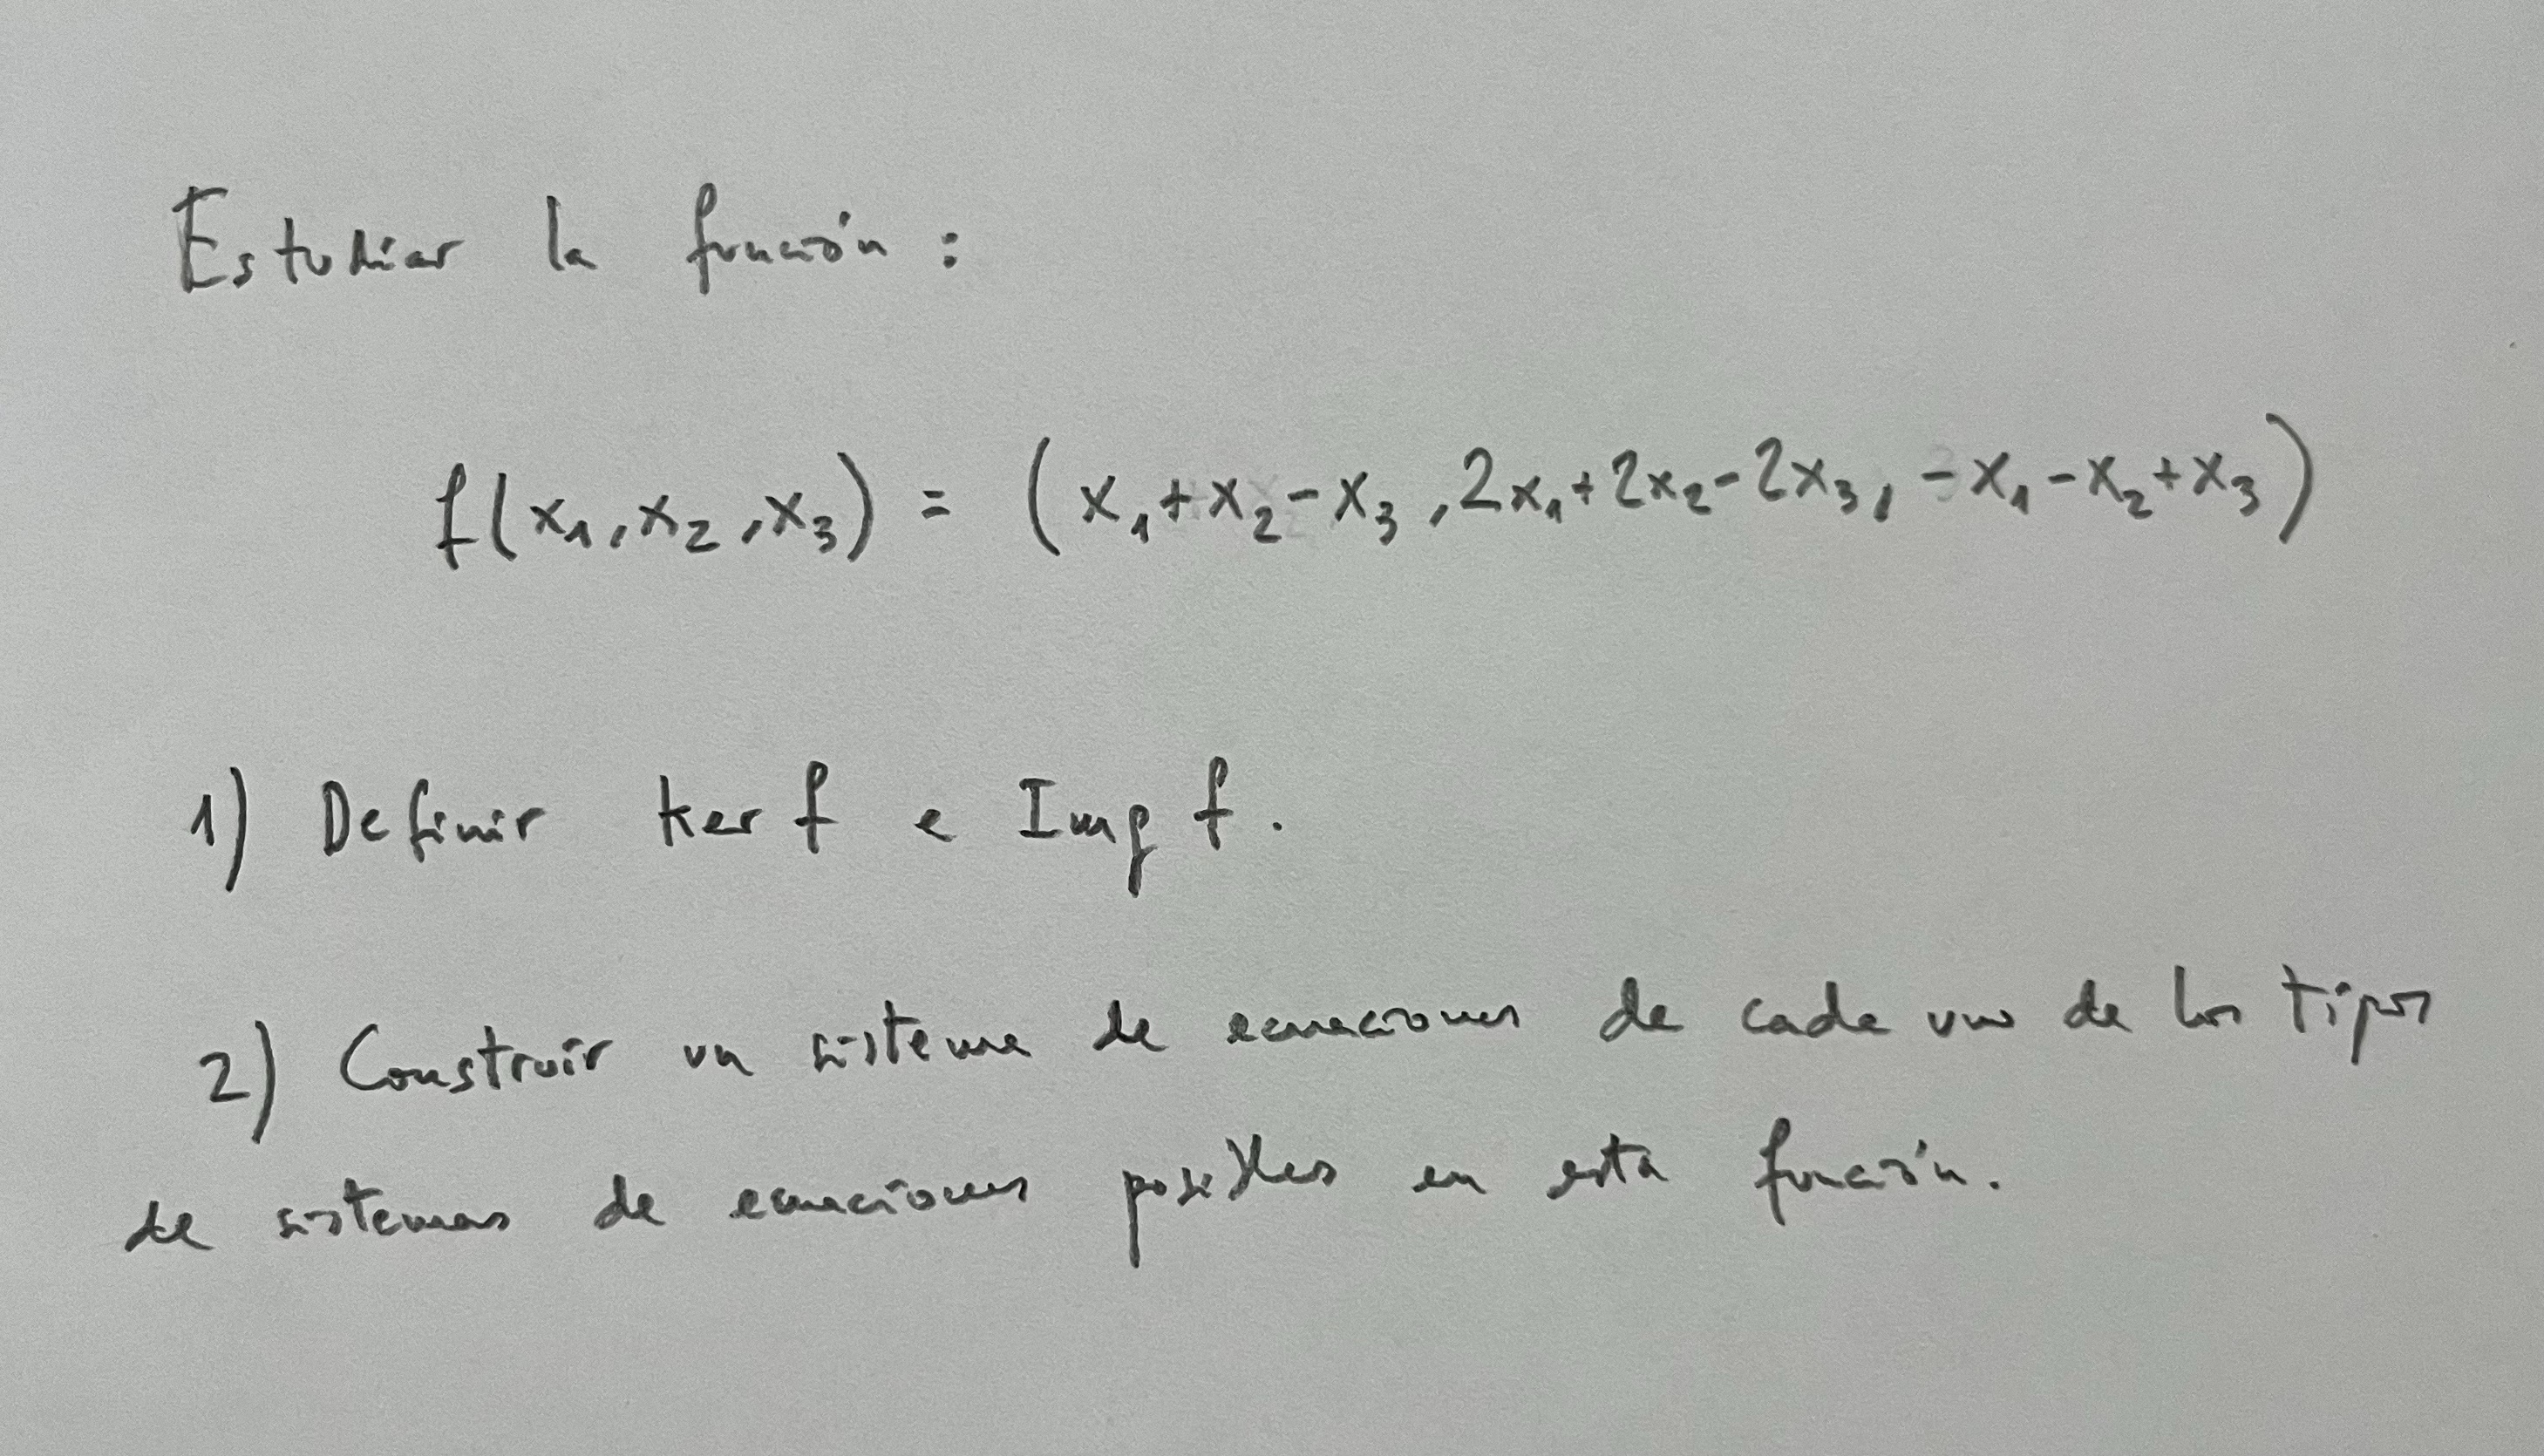 Estudiar la función:
f(x₁,x₂,x₃) = (x₁+x₂-x₃, 2x₁+2x₂-2x₃, -x₁-x₂+x₃)
1) Definir ker f e Img f.
2) Construir un sistema de ecuaciones de cada uno de los tipos
de sistemas de ecuaciones posibles en esta función.